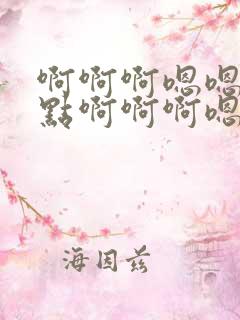 啊啊啊嗯嗯
點啊啊啊嗯
海因兹